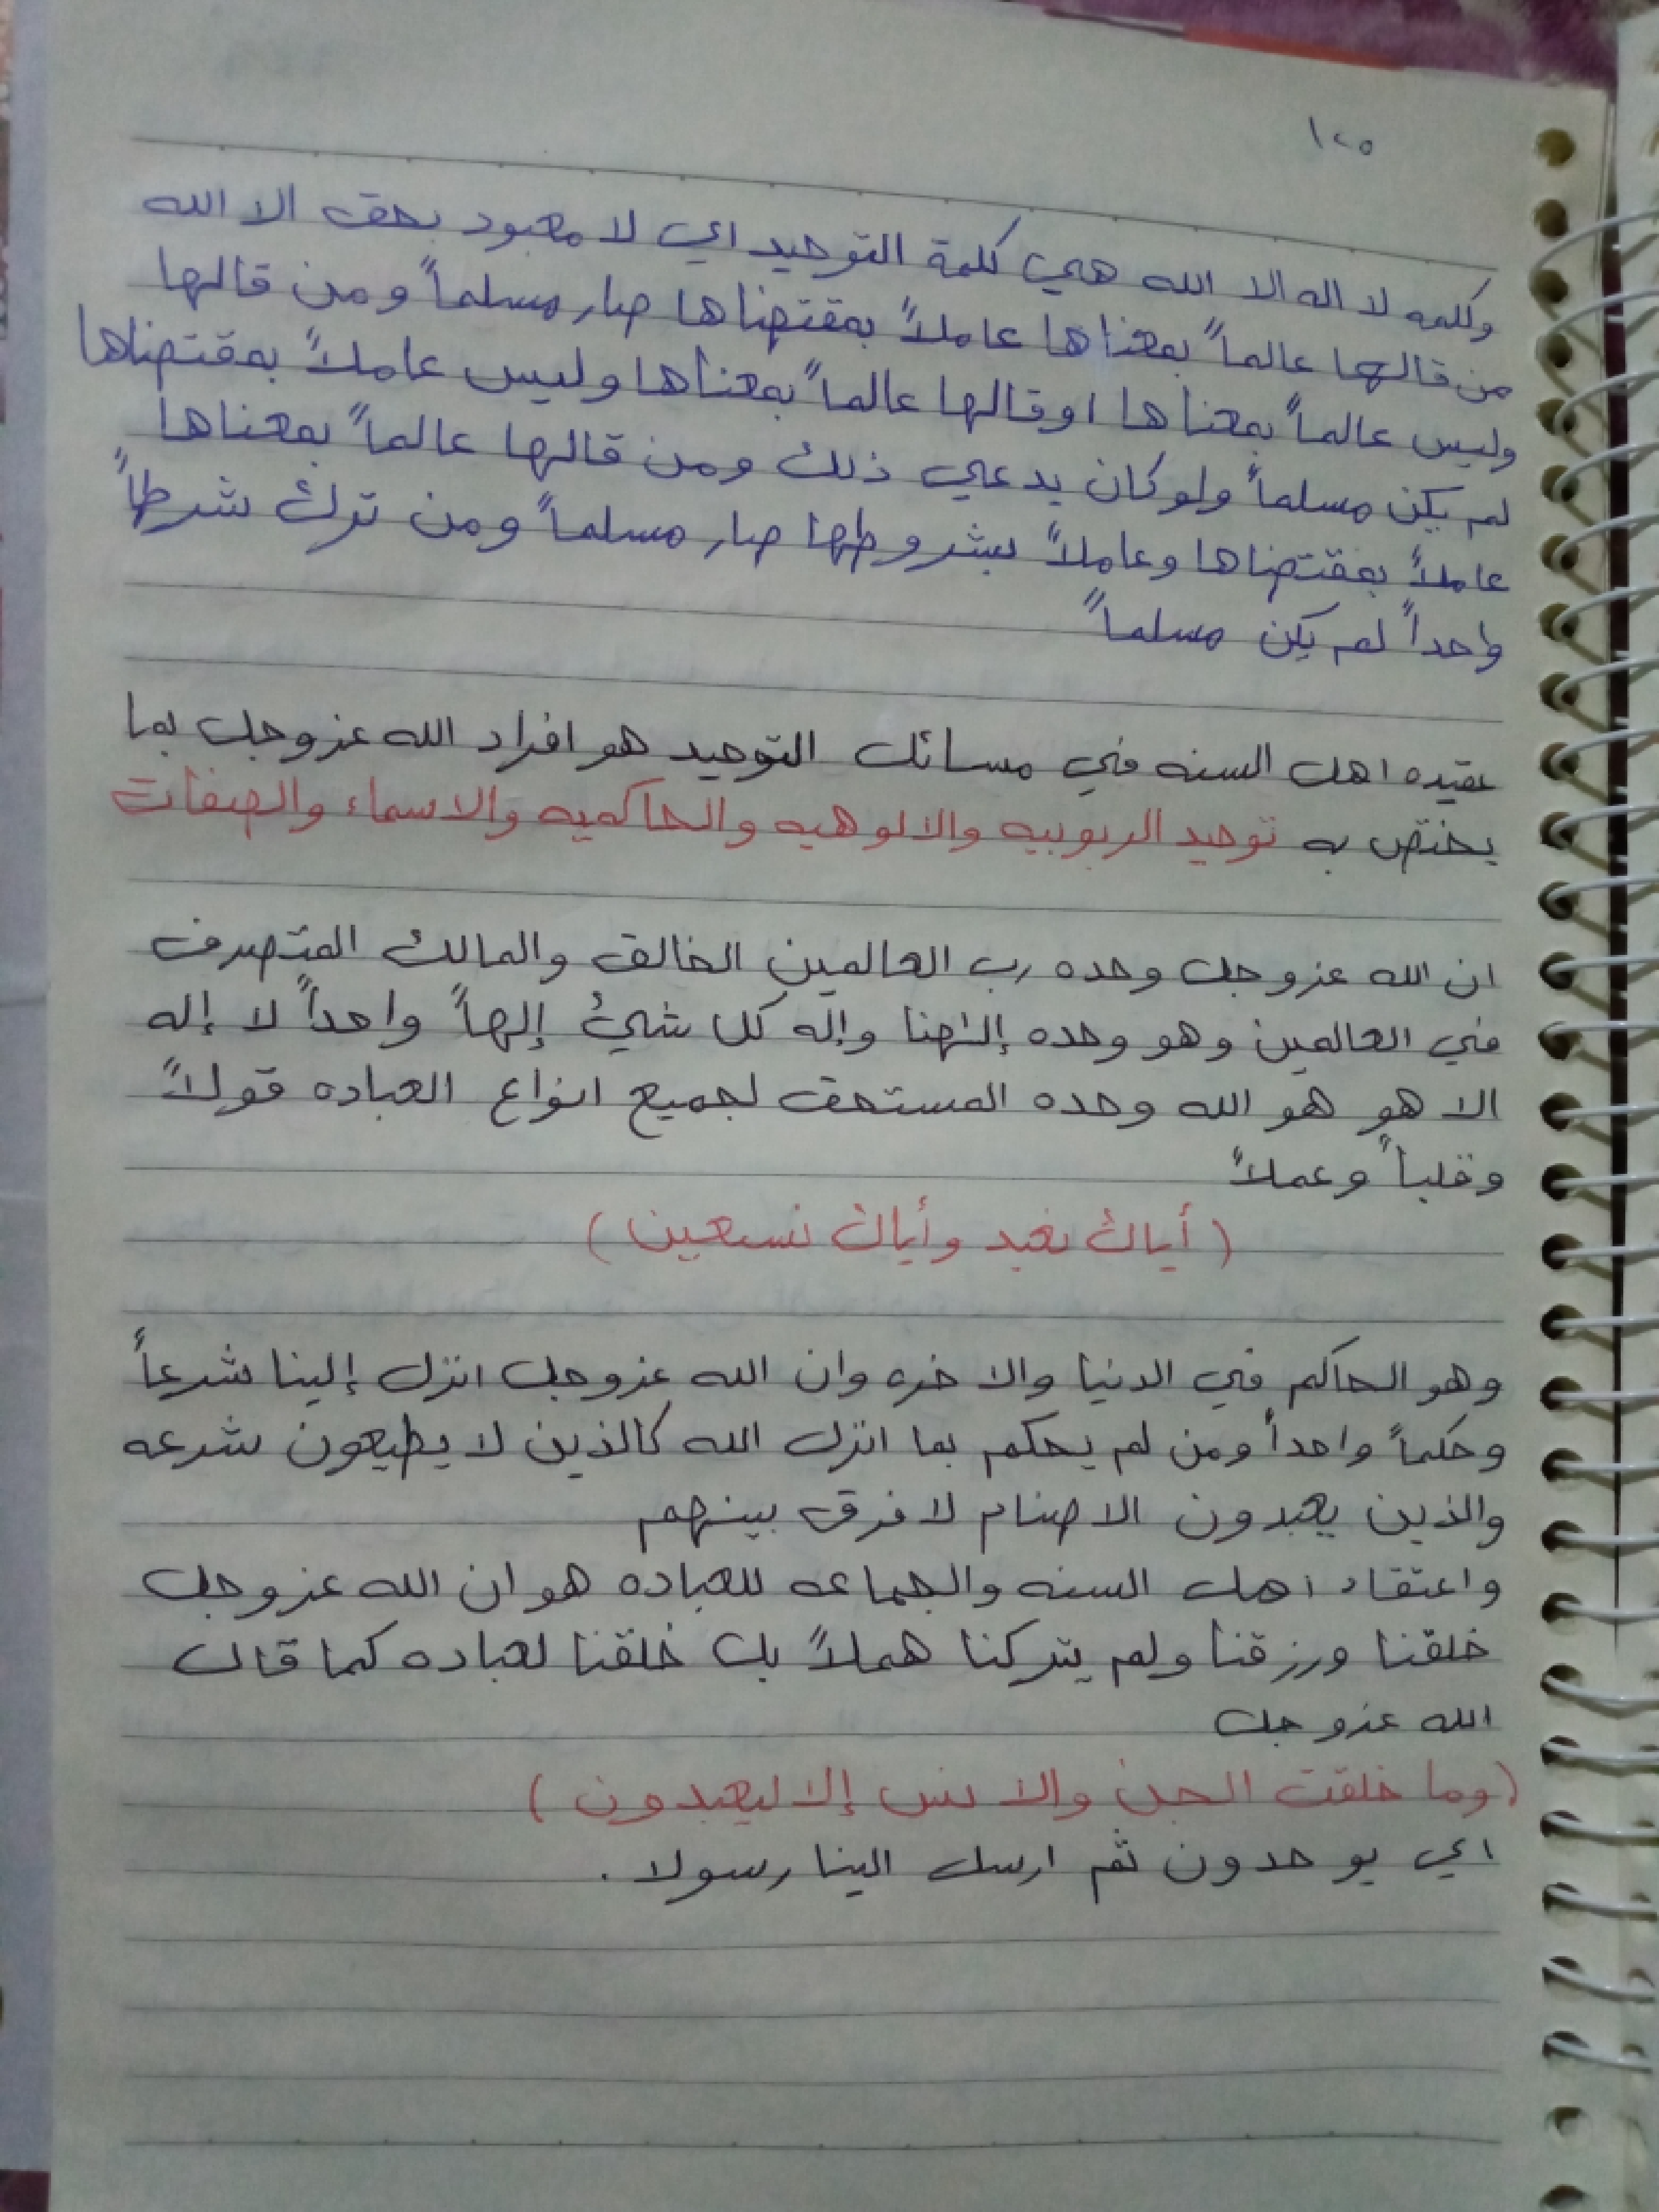 ١٢٥
وكلمه لا اله الا الله هي كلمة التوحيد اي لا معبود بحق الا الله
من قالها عالماً بمعناها عاملاً بمقتضاها صار مسلماً ومن قالها
وليس عالماً بمعناها او قالها عالماً بمعناها وليس عاملاً بمقتضاها
لم يكن مسلماً ولو كان يدعي ذلك ومن قالها عالماً بمعناها
عاملاً بمقتضاها وعاملاً بشروطها صار مسلماً ومن ترك شرطاً
واحداً لم يكن مسلماً
عقيده اهل السنه في مسائل التوحيد هو افراد الله عزوجل بما
يختص به توحيد الربوبيه والالوهيه والحاكميه والاسماء والصفات
ان الله عزوجل وحده رب العالمين الخالق والمالك المتصرف
في العالمين وهو وحده إلهنا وإله كل شيئ إلهاً واحداً لا إله
الا هو هو الله وحده المستحق لجميع انواع العباده قولاً
وقلباً وعملاً
(أياك نعبد وأياك نسعين)
وهو الحاكم في الدنيا والاخره وان الله عزوجل انزل إلينا شرعاً
وحكماً واحداً ومن لم يحكم بما انزل الله كالذين لا يطيعون شرعه
والذين يعبدون الاصنام لا فرق بينهم
واعتقاد اهل السنه والجماعه للعباده هو ان الله عزوجل
خلقنا ورزقنا ولم يتركنا هملاً بل خلقنا لعباده كما قال
الله عزوجل
(وما خلقت الجن والانس إلا ليعبدون)
اي يوحدون ثم ارسل الينا رسولا .